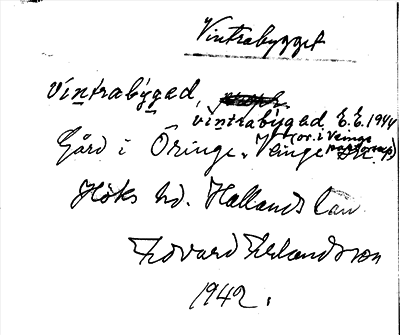 Vintrabygget
vintrabygad
vintrabygad E.E. 1944
(or. i Veinge
Gård i Öringe. Veinge
Höks hd. Hallands län
Edvard Erlandsson
1942.